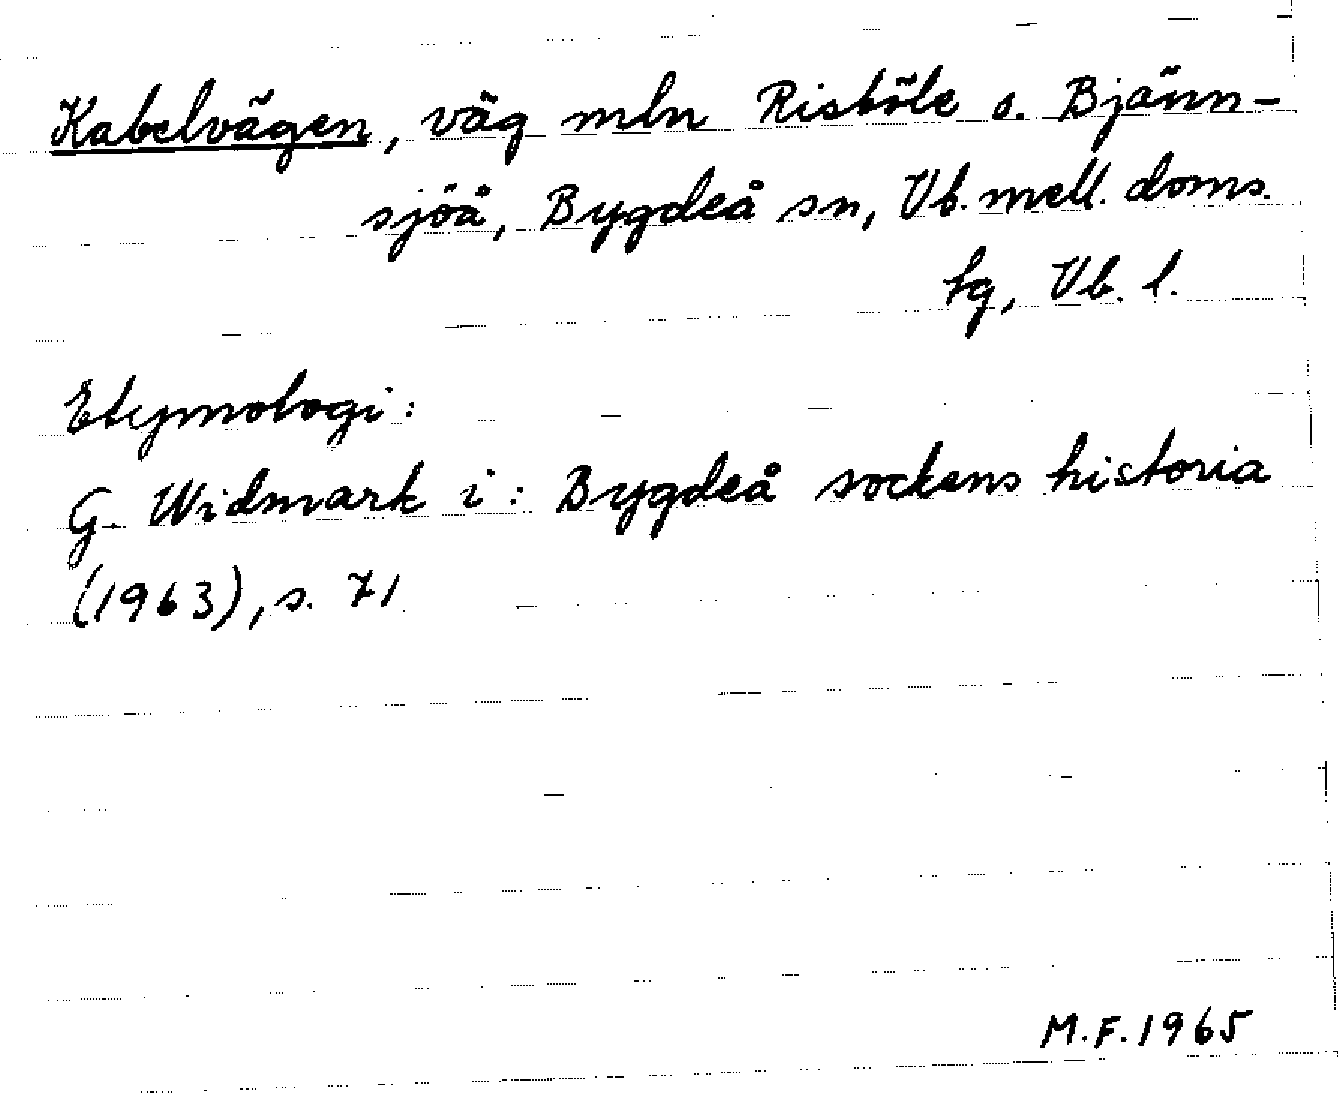 Kabelvägen, väg mln Ristöle o. Bjänn-
sjöå, Bygdeå sn, Vb. mell. doms.
tg, Vb. l.
Etymologi:
G. Widmark i: Bygdeå sockens historia
(1963), s. 71
M.F. 1965